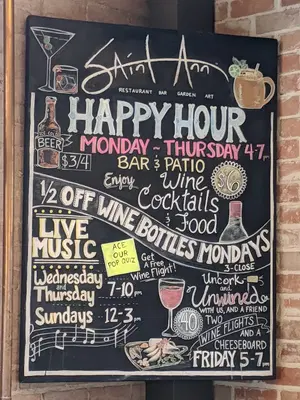 Saint Ann
RESTAURANT BAR GARDEN ART
HAPPY HOUR
MONDAY ~ THURSDAY 4-7pm
BEER
$3/4
BAR & PATIO
Enjoy
Wine
Cocktails
& Food
$6
1/2 OFF WINE BOTTLES MONDAYS
3-CLOSE
LIVE
MUSIC
Wednesday
and
Thursday
7-10pm
Sundays 12-3pm
ACE
OUR
POP QUIZ
Get a
Free
Wine Flight!
Uncork
and
Unwined
WITH US, AND A FRIEND
$40
TWO
WINE FLIGHTS
AND A
CHEESEBOARD
FRIDAY 5-7pm